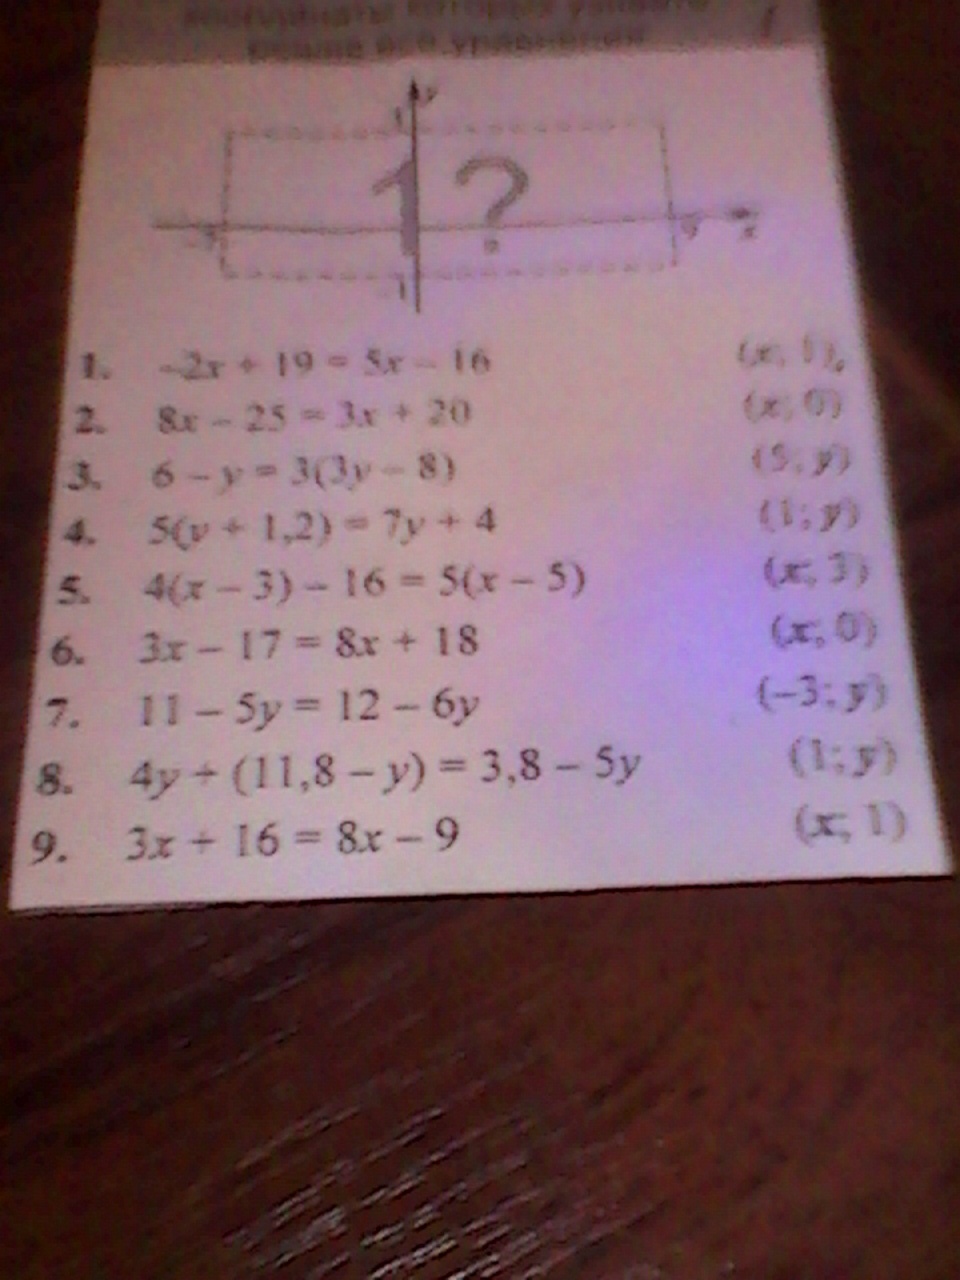 координаты которых узнаете
решив все уравнения
y
1
1 ?
9 x
-1
1. -2x + 19 = 5x - 16 (x; 1),
2. 8x - 25 = 3x + 20 (x; 0)
3. 6 - y = 3(3y - 8) (5; y)
4. 5(y + 1,2) = 7y + 4 (1; y)
5. 4(x - 3) - 16 = 5(x - 5) (x; 3)
6. 3x - 17 = 8x + 18 (x; 0)
7. 11 - 5y = 12 - 6y (-3; y)
8. 4y + (11,8 - y) = 3,8 - 5y (1; y)
9. 3x + 16 = 8x - 9 (x; 1)